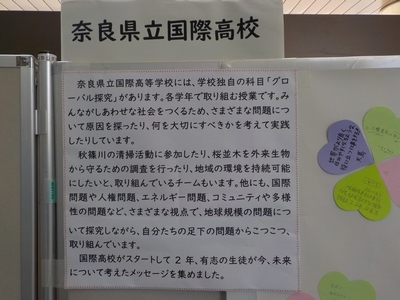 奈良県立国際高校
奈良県立国際高等学校には、学校独自の科目「グロ
ーバル探究」があります。各学年で取り組む授業です。み
んながしあわせな社会をつくるため、さまざまな問題につ
いて原因を探ったり、何を大切にすべきかを考えて実践
したりしています。
秋篠川の清掃活動に参加したり、桜並木を外来生物
から守るための調査を行ったり、地域の環境を持続可能
にしたいと、取り組んでいるチームもいます。他にも、国際
問題や人権問題、エネルギー問題、コミュニティや多様
性の問題など、さまざまな視点で、地球規模の問題につ
いて探究しながら、自分たちの足下の問題からこつこつ、
取り組んでいます。
国際高校がスタートして 2 年、有志の生徒が今、未来
について考えたメッセージを集めました。